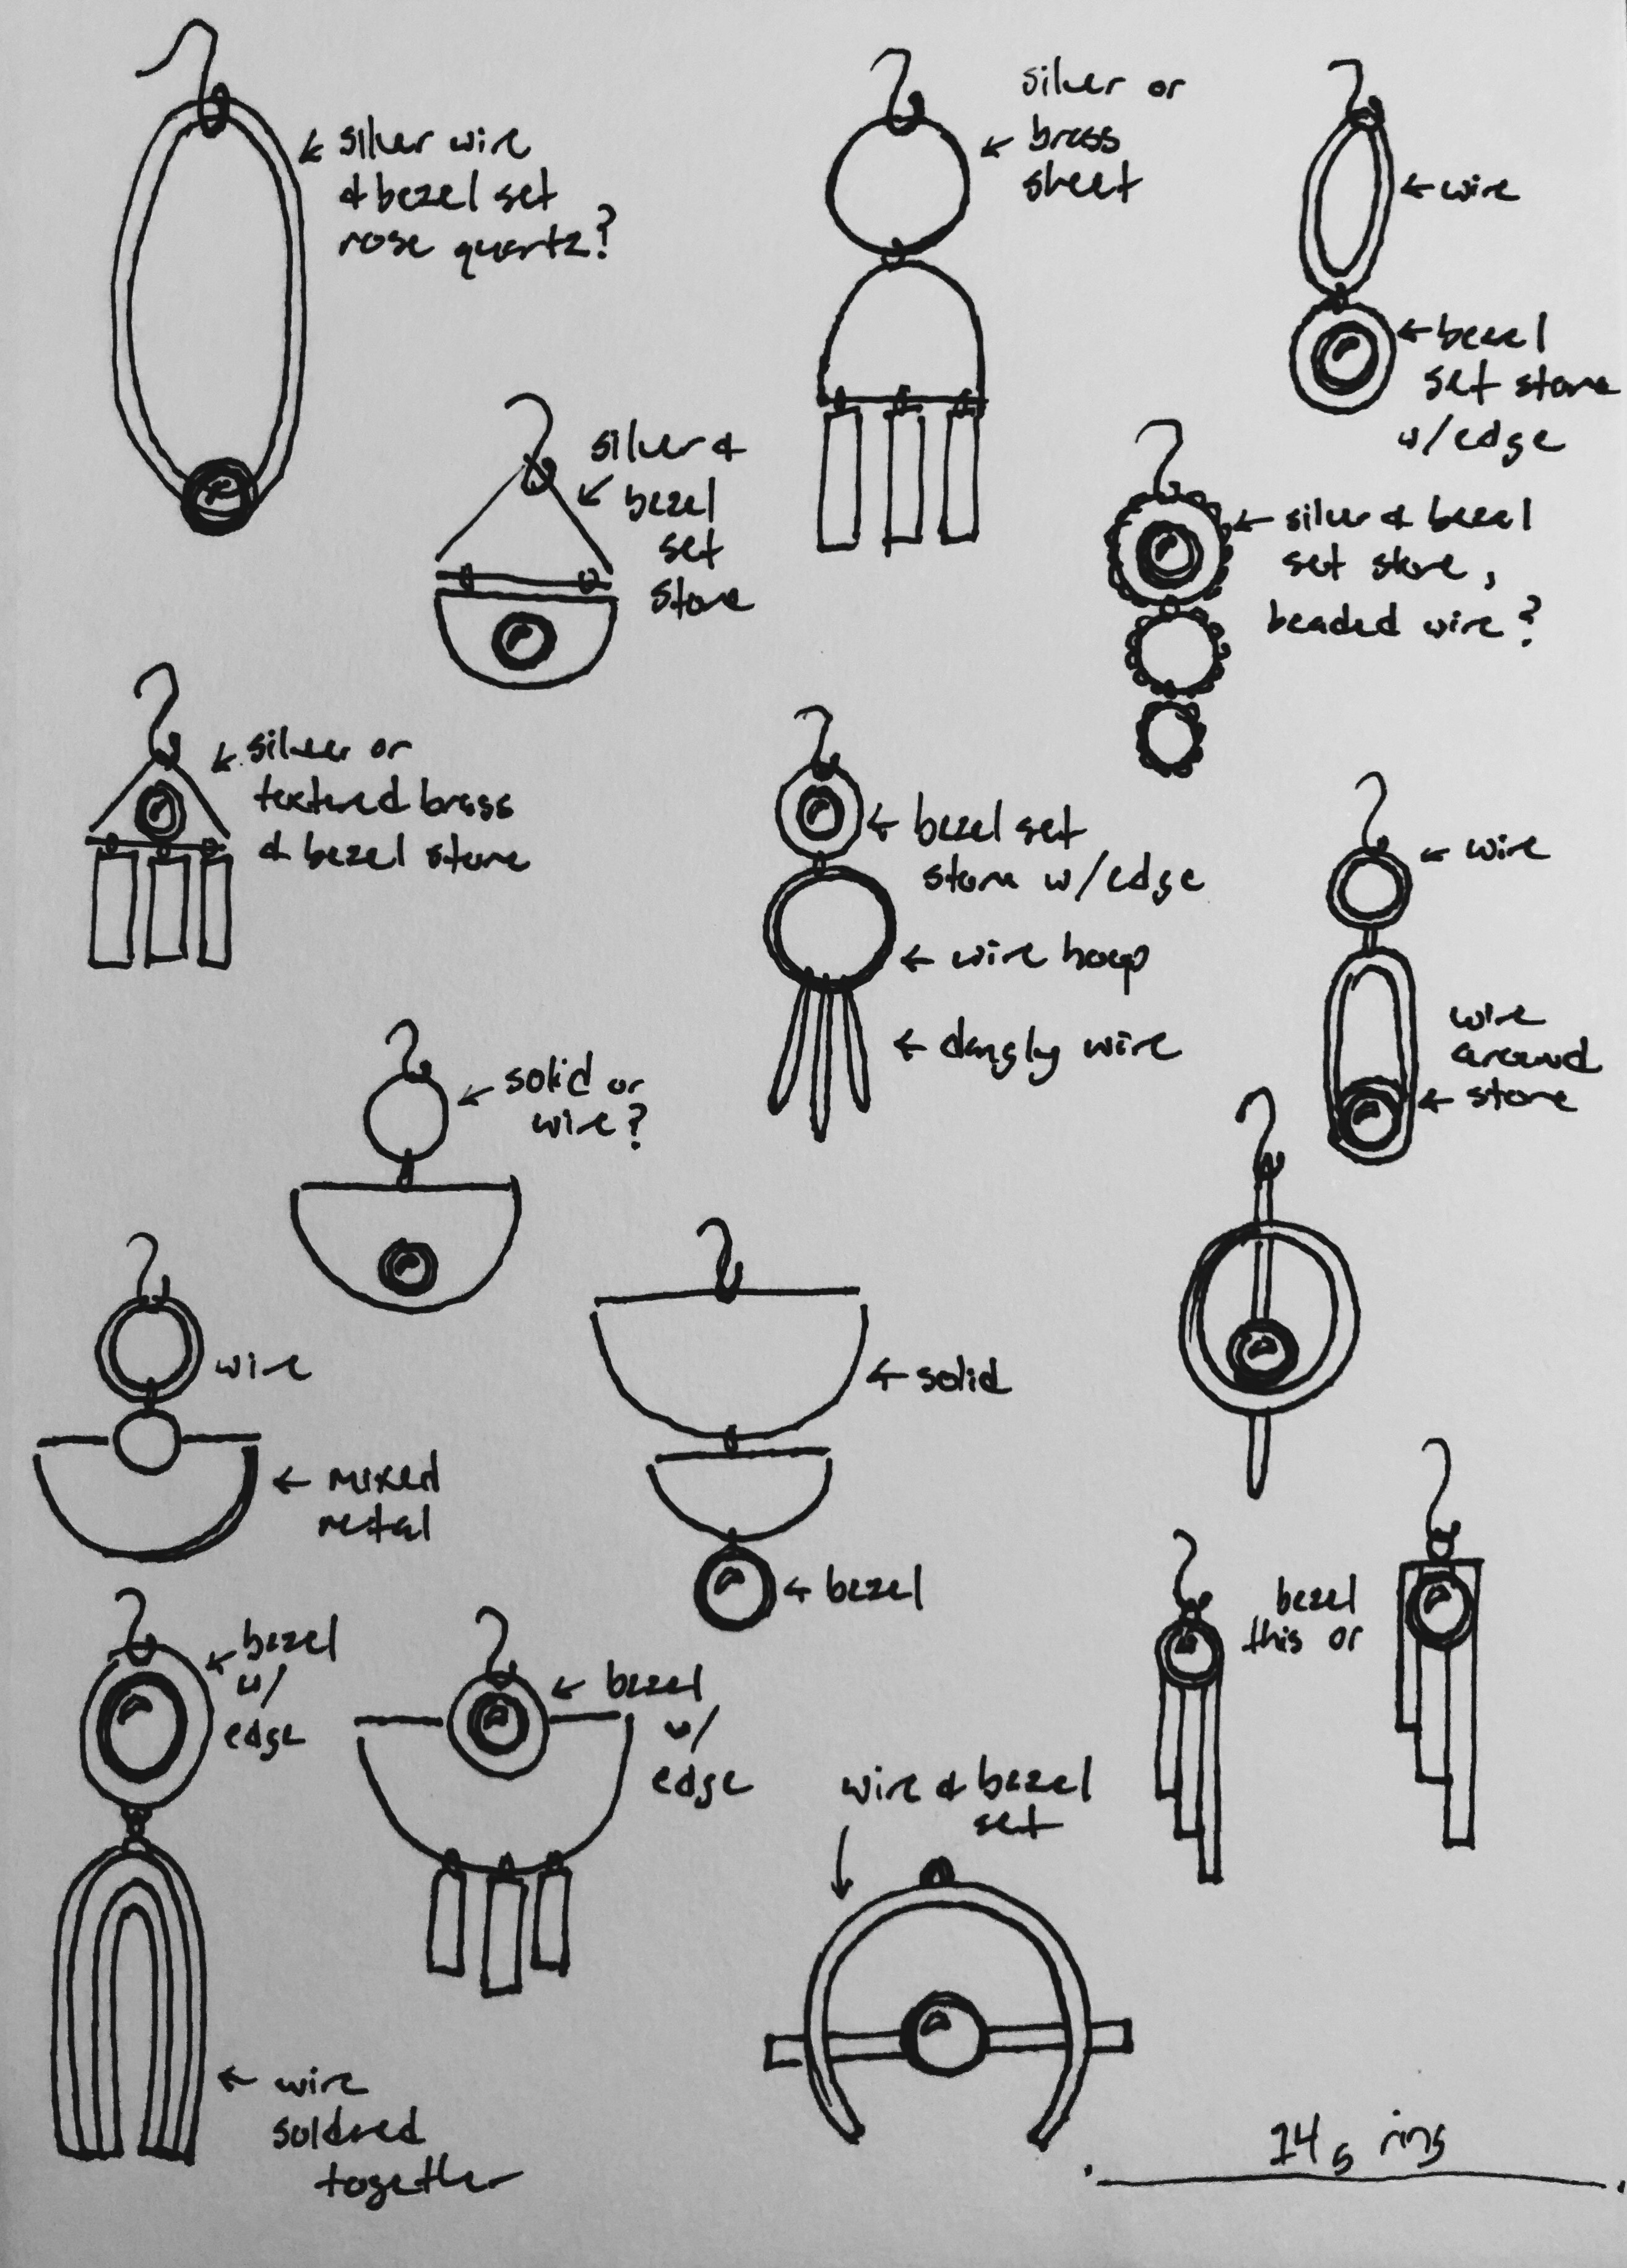 silver wire
& bezel set
rose quartz?
silver or
brass
sheet
wire
bezel
set stone
w/edge
silver &
bezel
set
stone
silver & bezel
set stone,
beaded wire?
silver or
textured brass
& bezel stone
bezel set
stone w/edge
wire hoop
dangly wire
wire
wire
around
stone
solid or
wire?
wire
mixed
metal
solid
bezel
bezel
this or
bezel
w/
edge
bezel
w/
edge
wire & bezel
set
wire
soldred
together
14g ring